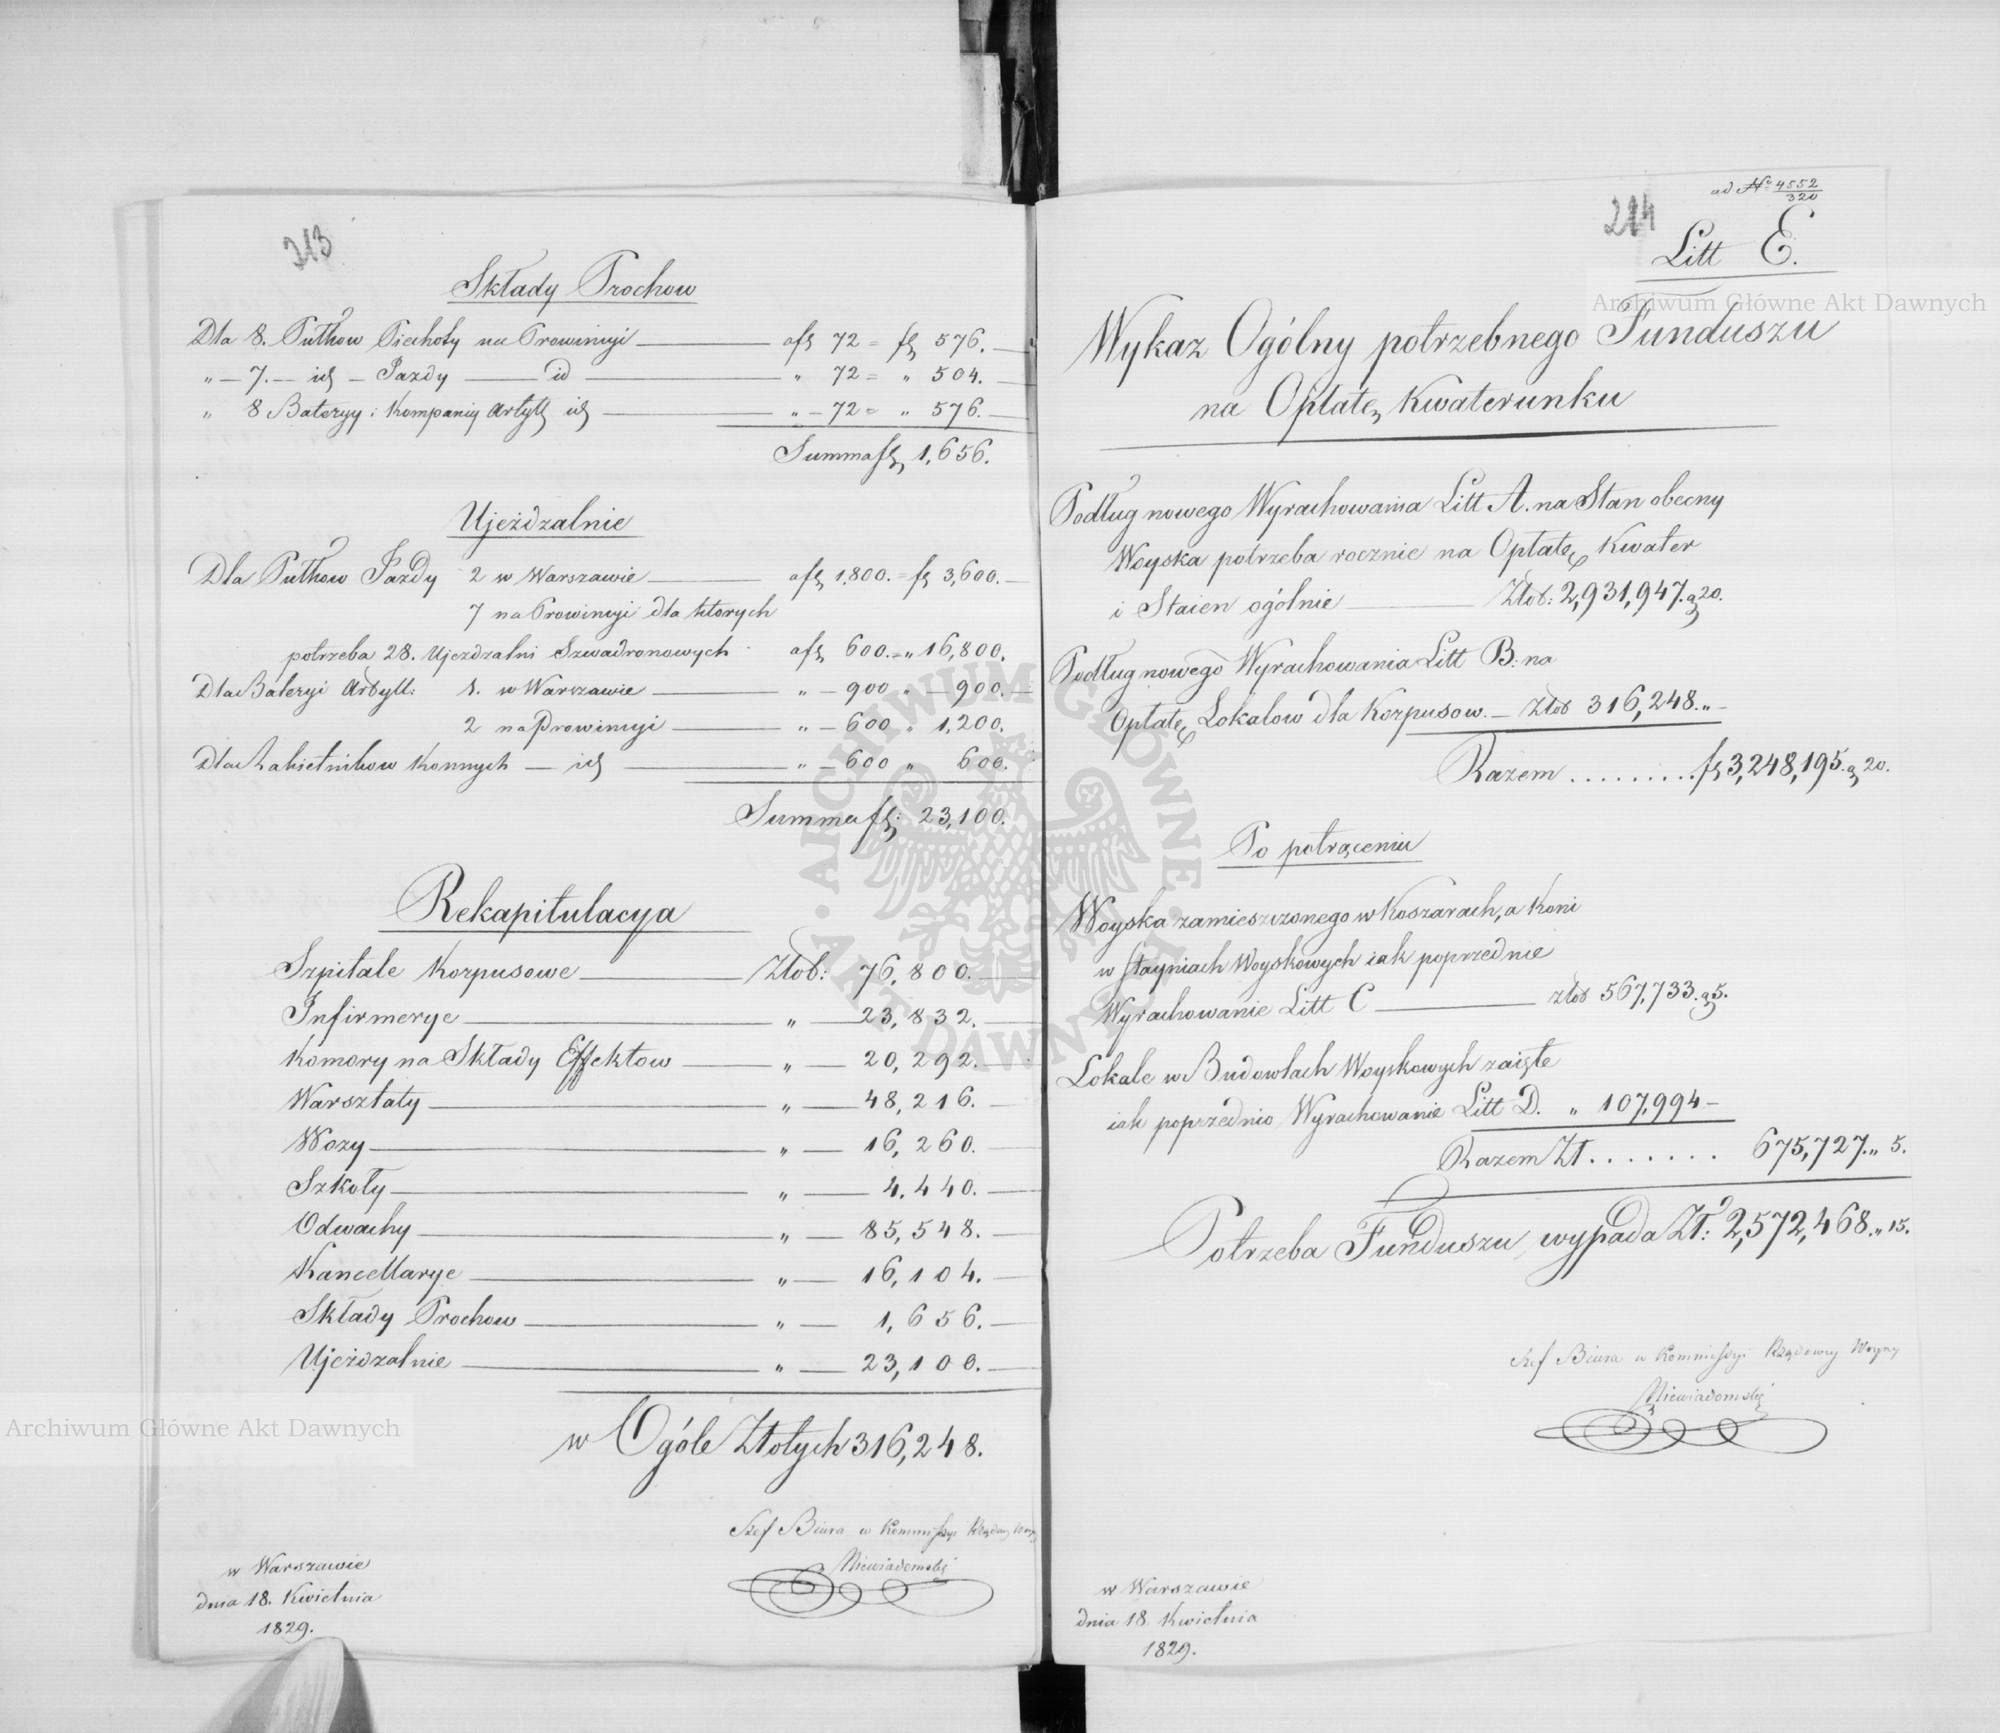 213
Składy Prochow
Dla 8. Pułkow Piechoty na Prowincyi — a fl 72 = fl 576. —
" — 7. — id — Jazdy — id — " 72 = " 504. —
" 8 Bateryy i Kompaniy Artyll id — " — 72 = " 576. —
Summa fl, 1,656.
Ujeżdzalnie
Dla Pułkow Jazdy 2 w Warszawie — a fl 1,800. = fl 3,600. —
7 na Prowincyi dla ktorych
potrzeba 28. Ujezdzalni Szwadronowych a fl 600. = " 16,800.
Dla Bateryi Artyll: 1. w Warszawie — " — 900 " — 900. —
2 na Prowincyi — " — 600 " 1,200.
Dla Rakietnikow Konnych — id — " — 600 " 600.
Summa fl: 23,100.
Rekapitulacya
Szpitale Korpusowe — Złob: 76,800. —
Infirmerye — " — 23,832. —
Komory na Składy Effektow — " — 20,292. —
Warsztaty — " — 48,216. —
Wozy — " — 16,260. —
Szkoły — " — 4,440. —
Odwachy — " — 85,548. —
Kancellarye — " — 16,104. —
Składy Prochow — " — 1,656. —
Ujeżdzalnie — " — 23,100. —
w Ogóle Złotych 316,248.
Szef Biura w Kommissyi Rządowey Woyny
Niewiadomski
w Warszawie
dnia 18. Kwietnia
1829.
ad No 4552/320
214
Litt E.
Wykaz Ogólny potrzebnego Funduszu
na Opłatę Kwaterunku
Podług nowego Wyrachowania Litt A. na Stan obecny
Woyska potrzeba rocznie na Opłatę Kwater
i Staien ogólnie — Złob: 2,931,947. g 20.
Podług nowego Wyrachowania Litt B: na
Opłatę Lokalow dla Korpusow. — Złob 316,248. " —
Razem ........ fl 3,248,195. g 20.
Po potrąceniu
Woyska zamieszczonego w Koszarach, a Koni
w stayniach Woyskowych iak poprzednie
Wyrachowanie Litt C — złob 567,733. g 5.
Lokale w Budowlach Woyskowych zaięte
iak poprzednio Wyrachowanie Litt D. " 107,994 —
Razem Zł ....... 675,727. " 5.
Potrzeba Funduszu wypada Zł: 2,572,468. " 15.
Szef Biura w Kommissyi Rządowey Woyny
Niewiadomski
w Warszawie
dnia 18. Kwietnia
1829.
Archiwum Główne Akt Dawnych
Archiwum Główne Akt Dawnych
ARCHIWUM GŁÓWNE AKT DAWNYCH